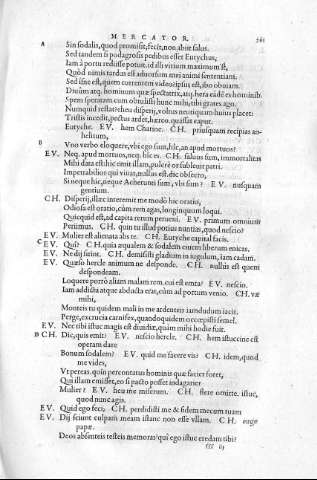 MERCATOR. 561
A Sin sodalis, quod promisit, fecit, non abiit salus.
Sed tandem si podagrosis pedibus esset Eutychus,
Iam à portu rediisse potuit. id illi vitium maximum est,
Quòd nimis tardus est aduorsum mei animi sententiam.
Sed isne est, quem currentem video? ipsus est, ibo obuiam.
Diuûm atque hominum quæ spectatrix, atque hera eadem es hominibus
Spem speratam cum obtulisti hanc mihi, tibi grates ago.
Nunquid restat? hei disperij, voltus neutiquam huius placet:
Tristis incedit, pectus ardet, hæreo, quassat caput.
Eutyche. EV. hem Charine. CH. priusquam recipias an-
helitum,
B Vno verbo eloquere, vbi ego sum, hic, an apud mortuos?
EV. Neque apud mortuos, neque hic es. CH. saluus sum, immortalitas
Mihi data est: hic emit illam, pulcrè os subleuit patri.
Impetrabilior qui viuat, nullus est, dic obsecro,
Si neque hic, neque Acherunti sum, vbi sum? EV. nusquam
gentium.
CH. Disperij, illæc interemit me modò hic oratio,
Odiosa est oratio, cùm rem agas, longinquum loqui.
Quicquid est, ad capita rerum perueni. EV. primum omnium
Perimus. CH. quin tu illud potius nuntias, quod nescio?
EV. Mulier est alienata abs te. CH. Eutyche capital facis.
C EV. Qui? CH. quia æqualem & sodalem ciuem liberum enicas.
EV. Ne dij sirint. CH. demisisti gladium in iugulum, iam cadam.
EV. Quæso hercle animum ne desponde. CH. nullus est quem
despondeam.
Loquere porrò aliam malam rem. cui est emta? EV. nescio.
Iam addicta atque abducta erat, cùm ad portum venio. CH. væ
mihi,
Monteis tu quidem mali in me ardenteis iamdudum iacis.
Perge, excrucia carnifex, quandoquidem occœpisti semel.
EV. Nec tibi istuc magis est diuidiæ, quàm mihi hodie fuit.
D CH. Dic, quis emit? EV. nescio hercle. CH. hem istuccine est
operam dare
Bonum sodalem? EV. quid me facere vis? CH. idem, quod
me vides,
Vt pereas. quin percontatus hominis quæ facies foret,
Qui illam emisset, eo si pacto posset indagarier
Mulier? EV. heu me miserum. CH. flere omitte. istuc,
quod nunc agis.
EV. Quid ego feci? CH. perdidisti me & fidem mecum tuam
EV. Dij sciunt culpam meam istanc non esse vllam. CH. euge
papæ.
Deos absenteis testeis memoras: qui ego istuc credam tibi?